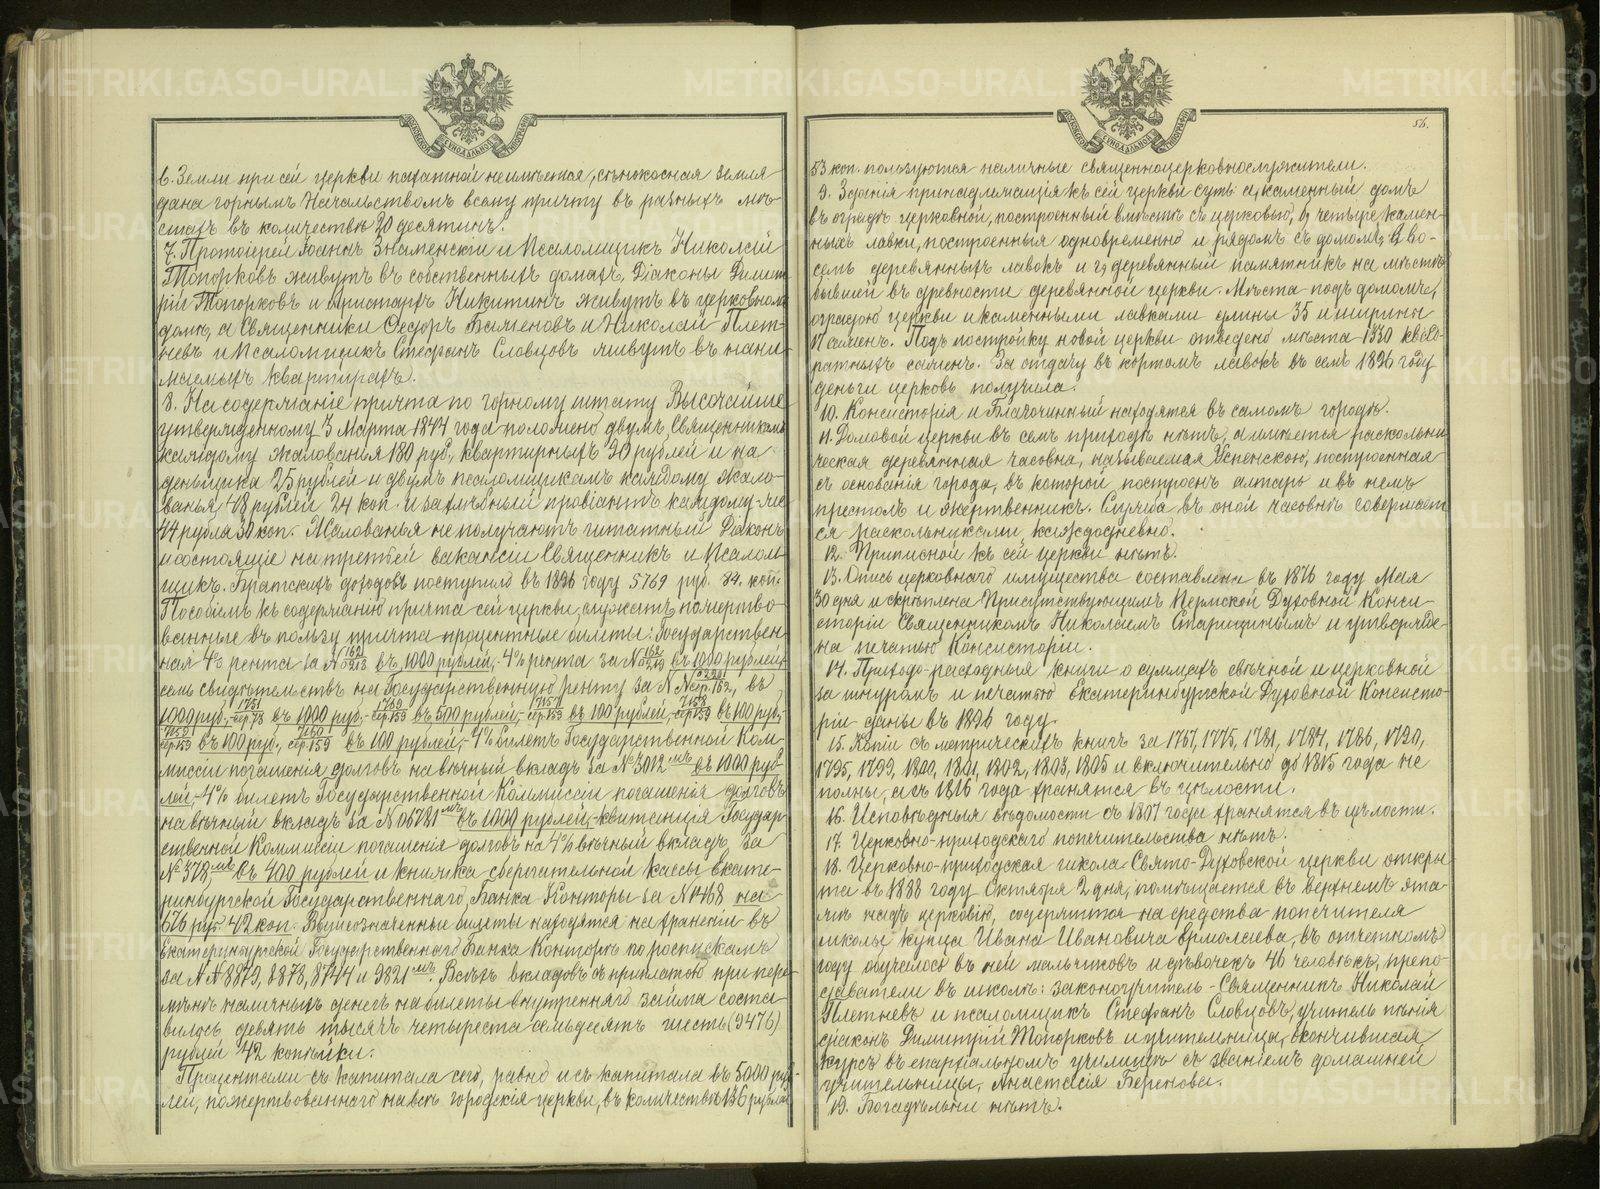 6. Земли при сей церкви пахатной не имѣется, сѣнокосная земля
дана горнымъ Начальствомъ всему причту въ разныхъ мѣ-
стахъ въ количествѣ 20 десятинъ.
7. Протоіерей Іоаннъ Знаменскій и Псаломщикъ Николай
Топорковъ живутъ въ собственныхъ домахъ, Діаконы Димит-
рій Топорковъ и Аристархъ Никитинъ живутъ въ церковномъ
домѣ, а Священники Ѳедоръ и Николай Плет-
невъ и Псаломщикъ Стефанъ Словцовъ живутъ въ нани-
маемыхъ квартирахъ.
8. На содержаніе причта по горному штату Высочайше
утвержденному 3 Марта 1847 года положено двумъ Священникамъ
каждому жалованья 180 руб., квартирныхъ 30 рублей и на
деньщика 25 рублей и двумъ псаломщикамъ каждому жало-
ванья 48 рублей 24 коп. и за хлѣбный провіантъ каждому
44 рубля 30 коп. Жалованья не получаютъ штатный Діаконъ
и состоящіе на третьей вакансіи Священникъ и Псалом-
щикъ. Братскихъ доходовъ поступило въ 1896 году 5769 руб. 84. коп.
Пособіемъ къ содержанію причта сей церкви служатъ пожертво-
ванные въ пользу причта процентные билеты: Государствен-
ная 4% рента за № 162/0213 въ 1000 рублей, 4% рента за № 162/0219 въ 1000 рублей,
семь свидѣтельствъ на Государственную ренту за № № 0220/сер.162, въ
1000 руб., 1751/сер.78 въ 1000 руб., 1769/сер.159 въ 500 рублей, 7157/сер.159 въ 100 рублей, 7158/сер.159 въ 100 руб.,
7159/сер.159 въ 100 руб., 7160/сер.159 въ 100 рублей, 4% билетъ Государственной Ком-
миссіи погашенія долговъ на вѣчный вкладъ за № 3012мъ въ 1000 руб-
лей, 4% билетъ Государственной Коммиссіи погашенія долговъ
на вѣчный вкладъ за № 06781мъ въ 1000 рублей, квитанція Государ-
ственной Коммиссіи погашенія долговъ на 4% вѣчный вкладъ за
№ 378мъ въ 700 рублей и книжка сберегательной кассы Екате-
ринбургской Государственнаго Банка Конторы за № 14168 на
676 руб. 42 коп. Вышеозначенные билеты находятся на храненіи въ
Екатеринбургской Государственнаго Банка Конторѣ по роспискамъ
за № № 8879, 8878, 8744 и 9821мъ. Всѣхъ вкладовъ съ приплатою при пере-
мѣнѣ наличныхъ денегъ на билеты внутренняго займа соста-
вилось девять тысячъ четыреста семьдесятъ шесть (9476)
рублей 42 копѣйки.
Процентами съ капитала сего, равно и съ капитала въ 5000 руб-
лей, пожертвованнаго на всѣ городскія церкви, въ количествѣ 136 рублей
56.
53 коп. пользуются наличные священноцерковнослужители.
9. Зданія принадлежащія къ сей церкви суть: а, каменный домъ
въ оградѣ церковной, построенный вмѣстѣ съ церковью, б, четыре камен-
ныхъ лавки, построенныя одновременно и рядомъ съ домомъ, в, во-
семь деревянныхъ лавокъ и г, деревянный памятникъ на мѣстѣ
бывшей въ древности деревянной церкви. Мѣста подъ домомъ,
оградою церкви и каменными лавками длины 35 и ширины
17 сажен. Подъ постройку новой церкви отведено мѣста 1330 квад-
ратныхъ сажен. За отдачу въ кортомъ лавокъ въ семъ 1896 году
деньги церковь получила.
10. Консисторія и Благочинный находятся въ самомъ городѣ.
11. Домовой церкви въ семъ приходѣ нѣтъ, а имѣется раскольни-
ческая деревянная часовня, называемая Успенскою, построенная
съ основанія города, въ которой построенъ алтарь и въ немъ
престолъ и жертвенникъ. Служба въ оной часовнѣ совершает-
ся раскольниками каждодневно.
12. Приписной къ сей церкви нѣтъ.
13. Опись церковнаго имущества составлена въ 1876 году Мая
30 дня и скрѣплена Присутствующимъ Пермской Духовной Конси-
сторіи Священникомъ Николаемъ Старицынымъ и утвержде-
на печатью Консисторіи.
14. Приходо-расходныя книги о суммахъ свѣчной и церковной
за шнуромъ и печатью Екатеринбургской Духовной Консисто-
ріи даны въ 1896 году.
15. Копіи съ метрическихъ книгъ за 1767, 1775, 1781, 1784, 1786, 1790,
1795, 1799, 1800, 1801, 1802, 1803, 1805 и включительно до 1815 года не
полны, а съ 1816 года хранятся въ цѣлости.
16. Исповѣдныя вѣдомости съ 1807 года хранятся въ цѣлости.
17. Церковно-приходскаго попечительства нѣтъ.
18. Церковно-приходская школа Свято-Духовской церкви откры-
та въ 1888 году Октября 2 дня, помѣщается въ верхнемъ эта-
жѣ надъ церковію, содержится на средства попечителя
школы купца Ивана Ивановича Ермолаева, въ отчетномъ
году обучалось въ ней мальчиковъ и дѣвочекъ 46 человѣкъ, препо-
даватели въ школѣ: законоучитель - Священникъ Николай
Плетневъ и псаломщикъ Стефанъ Словцовъ, учитель пѣнія
діаконъ Димитрій Топорковъ и учительница, окончившая
курсъ въ епархіальномъ училищѣ съ званіемъ домашней
учительницы, Анастасія Беренова.
19. Богадѣльни нѣтъ.